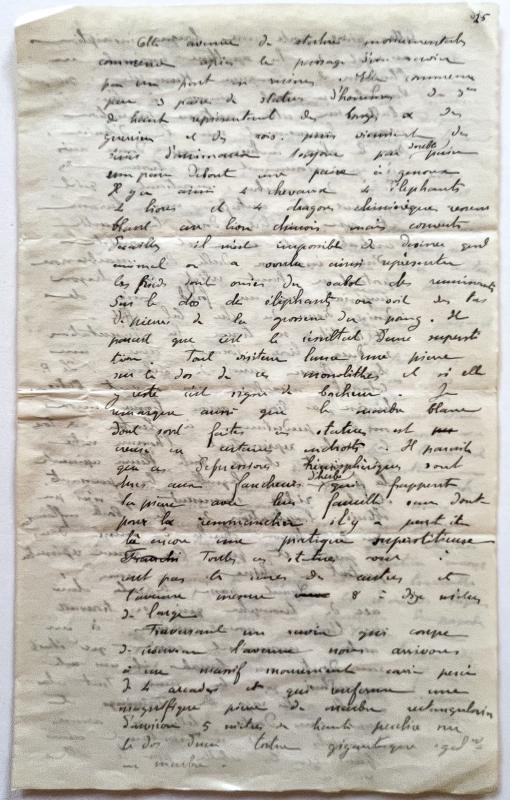 25
Cette avenue de statues monumentales
commence après le passage d'un ravin
par un pont en ruines. Elle commence
par 3 paires de statues d'hommes de 3m
de haut représentant des et des
guerriers et des rois. puis viennent des
séries d'animaux toujours par double paire
une paire debout une paire à genoux
Il y a ainsi 4 chevaux 4 éléphants
4 lions et 4 dragons chimériques ressem
blant au lion chinois mais couverts
d'écailles il m'est impossible de deviner quel
animal on a voulu ainsi représenter
les pieds sont ornés du sabot des ruminants
Sur le dos des éléphants on voit des tas
de pierres de la grosseur du poing. Il
paraît que c'est le résultat d'une supersti
tion. Tout visiteur lance une pierre
sur le dos de ces monolithes et si elle
y reste c'est signe de bonheur. Je
remarque aussi que le marbre blanc
dont sont faites ces statues est
creusé en certains endroits. Il paraît
que ces dépressions hémisphériques sont
dues aux faucheurs d'herbe qui frappent
la pierre avec leur faucille sans doute
pour la il y a peut être
là encore une pratique superstitieuse
Toutes ces statues sont à
cent pas les unes des autres et
l'avenue mesure 8 à dix mètres
de large.
Traversant un ravin qui coupe
de nouveau l'avenue nous arrivons
à un massif monument carré percé
de 4 arcades et qui renferme une
magnifique pierre de marbre rectangulaire
d'environ 5 mètres de haut perchée sur
le dos d'une tortue gigantesque
en marbre.